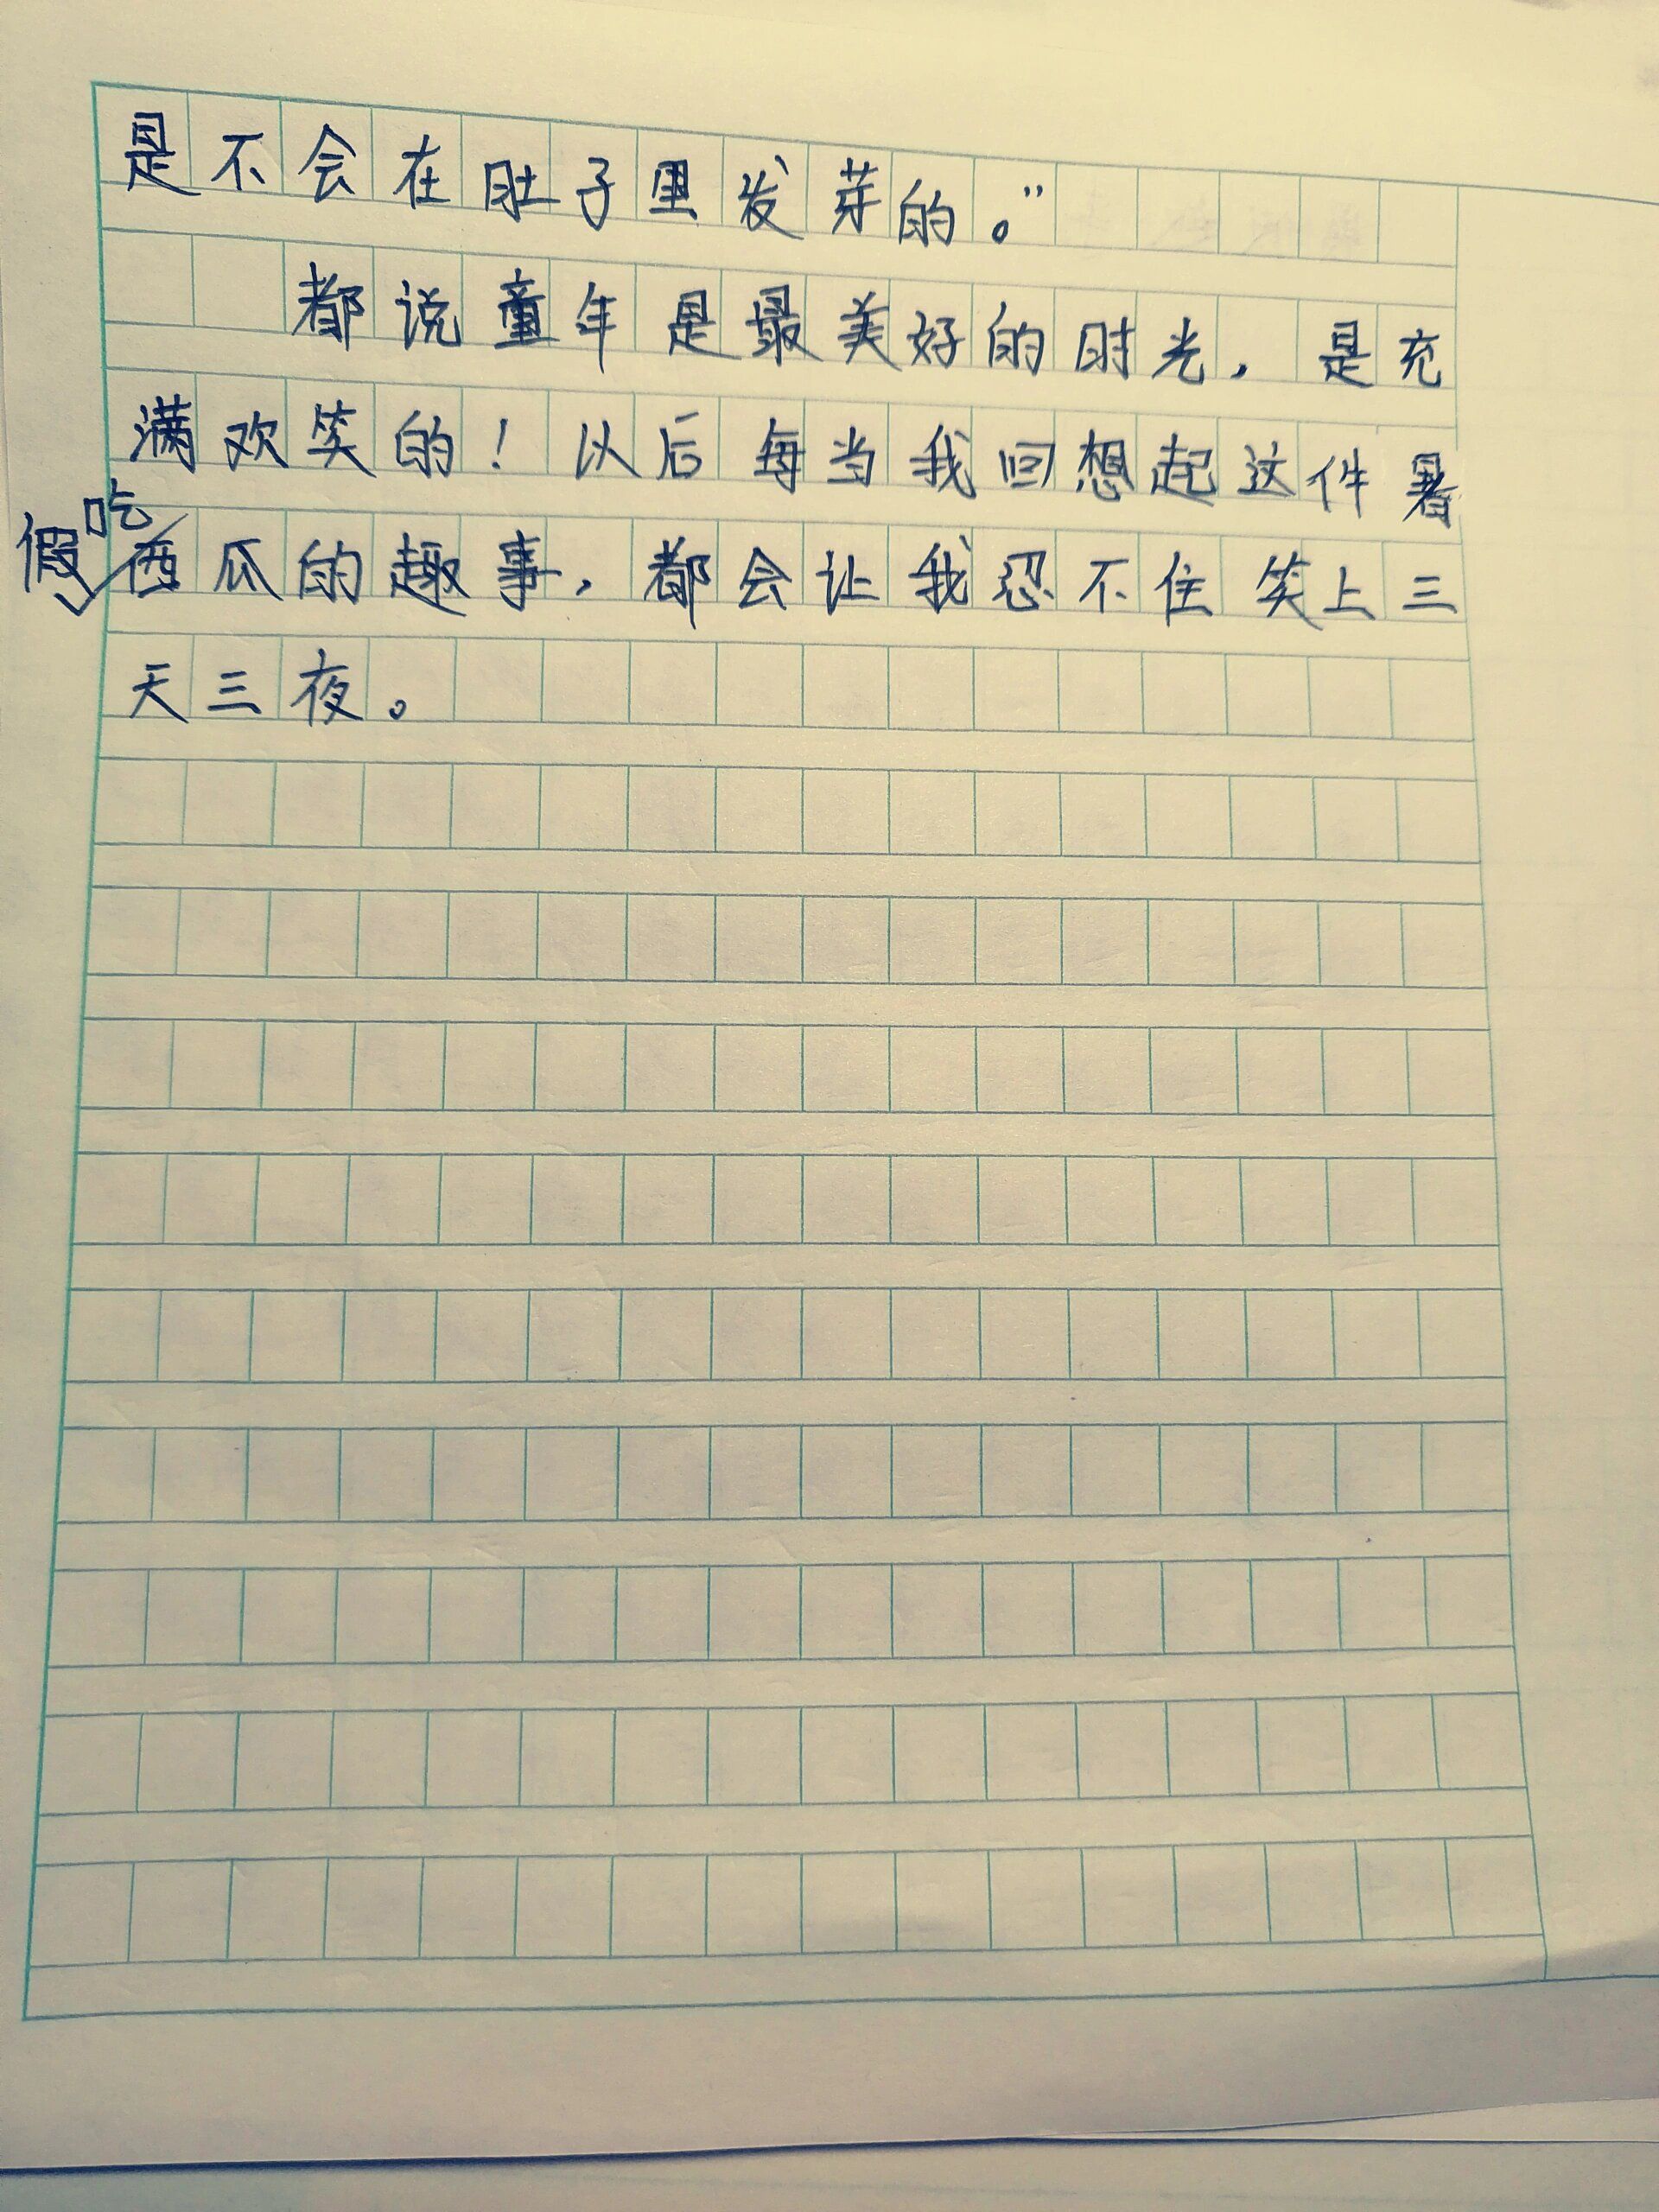 是不会在肚子里发芽的。”
都说童年是最美好的时光，是充
满欢笑的！以后每当我回想起这件暑
假吃西瓜的趣事，都会让我忍不住笑上三
天三夜。